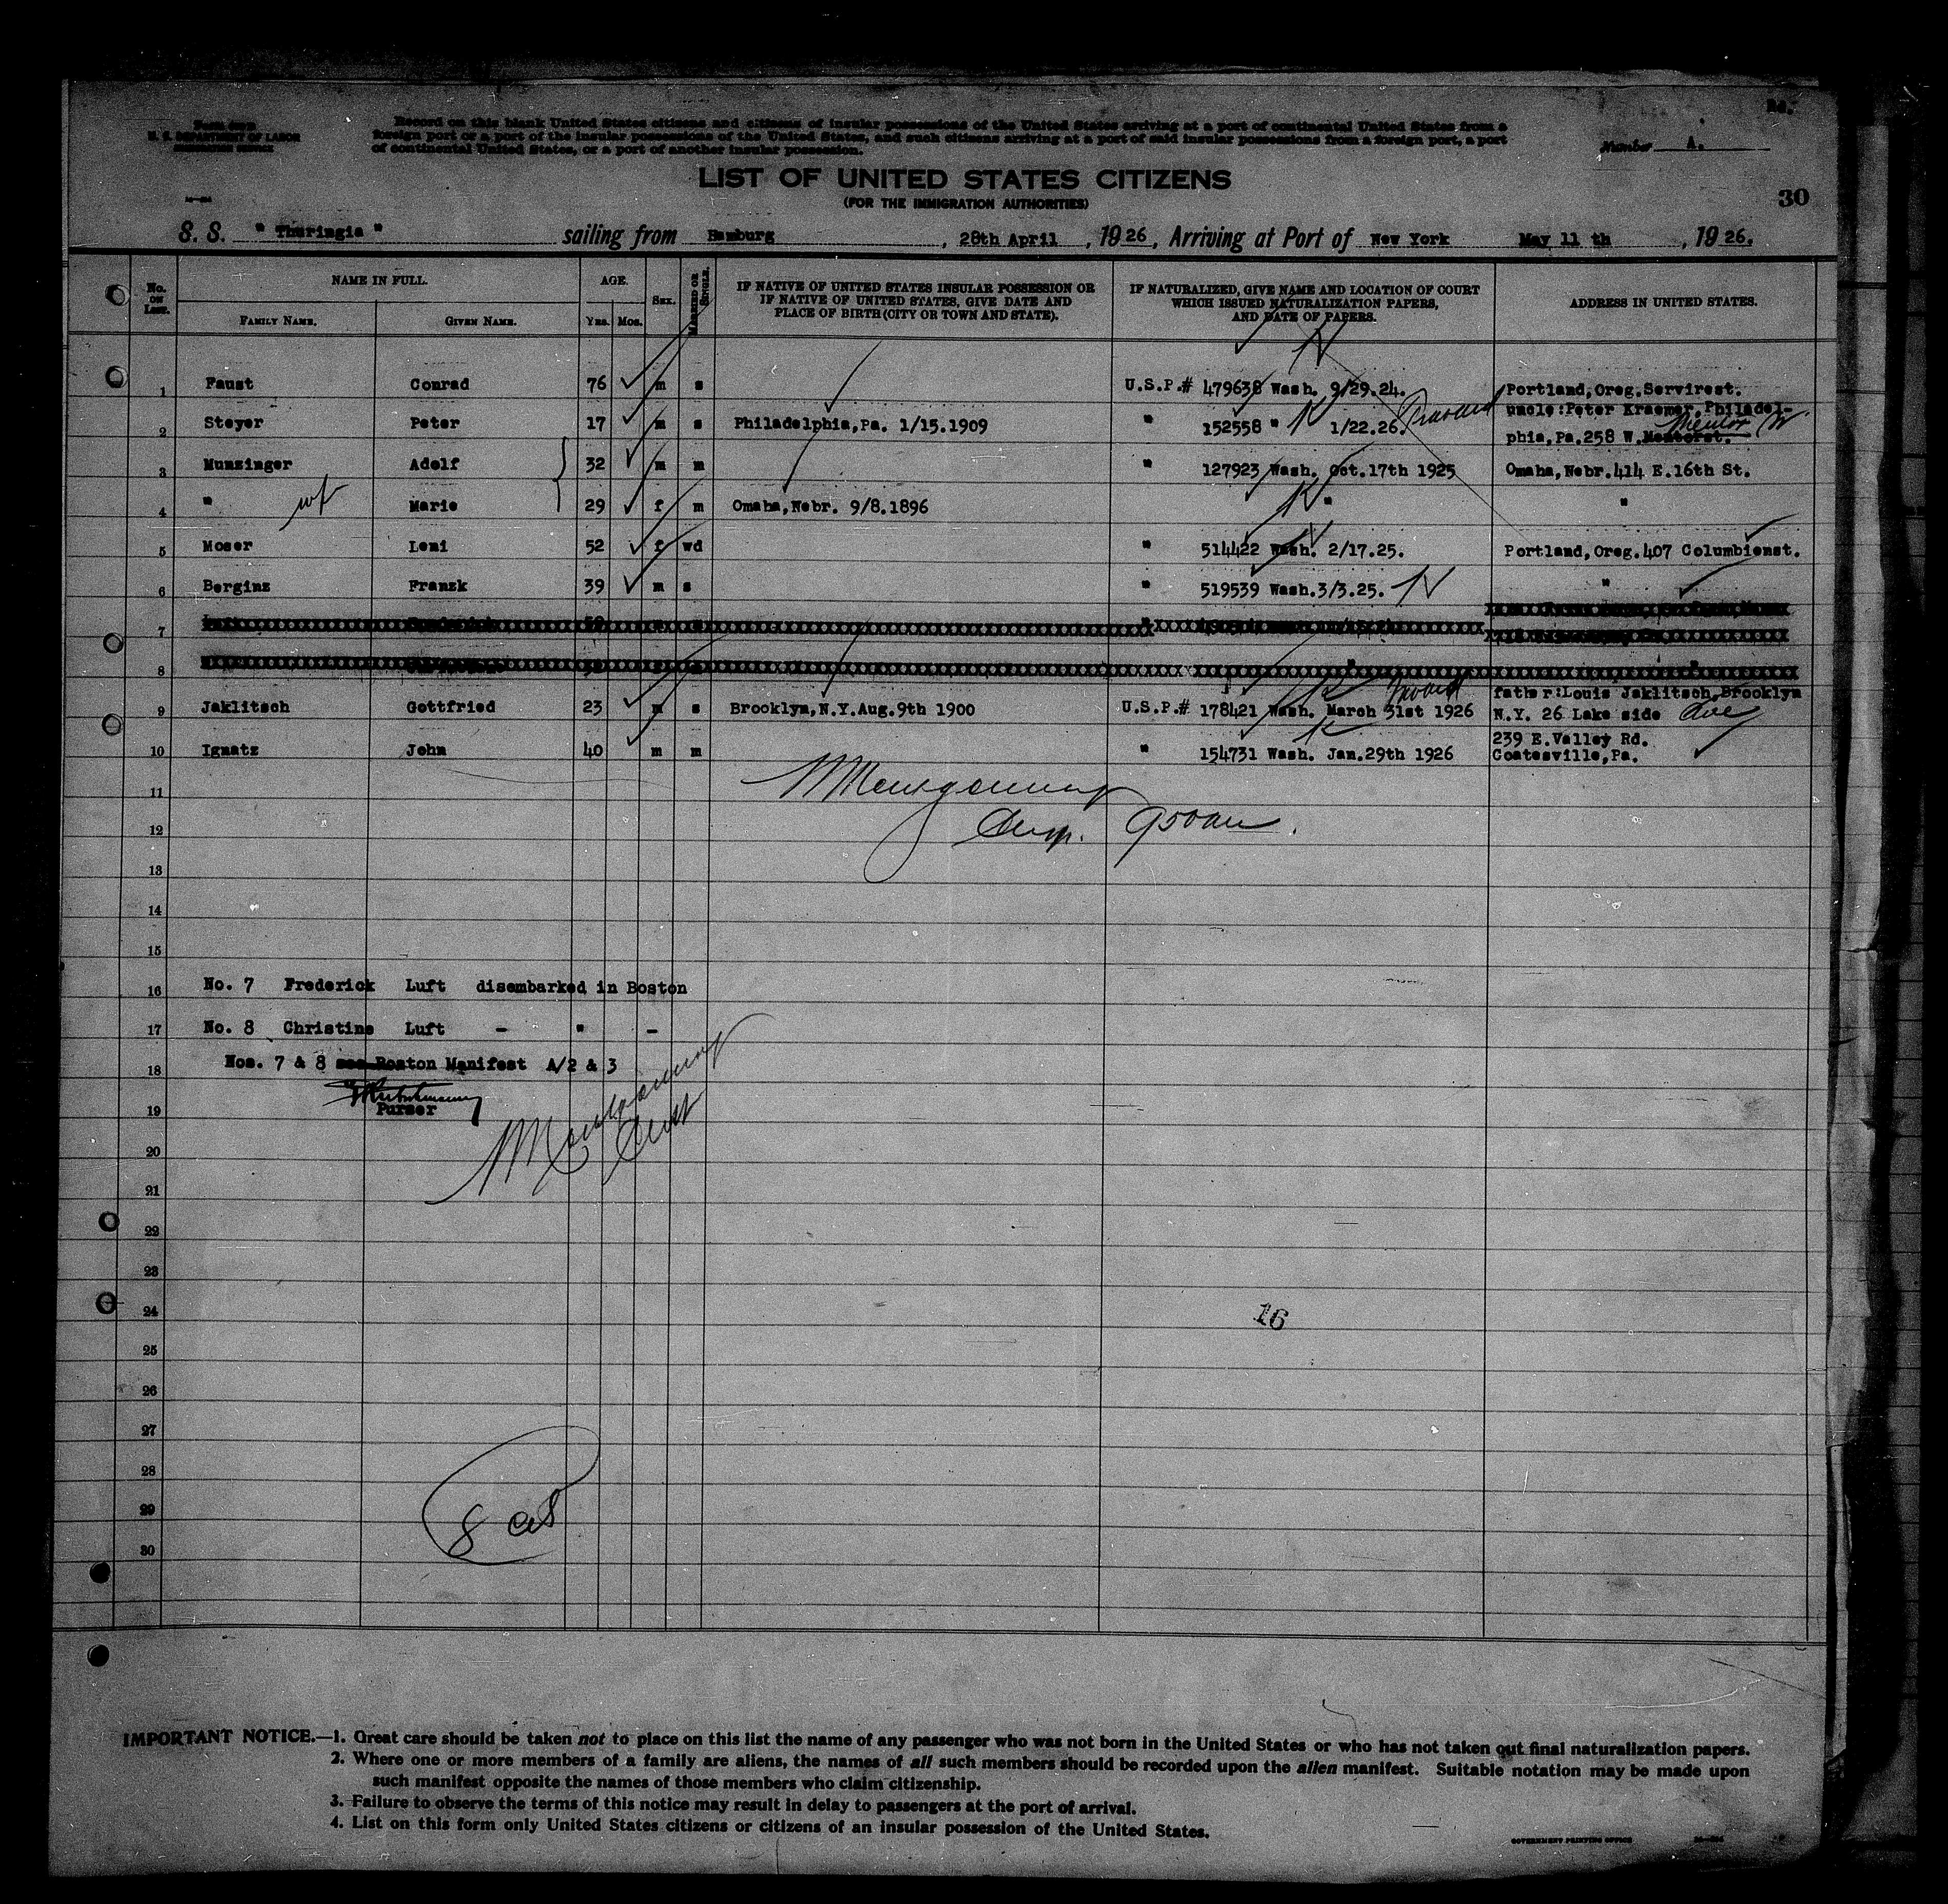 U. S. DEPARTMENT OF LABOR
IMMIGRATION SERVICE
Record on this blank United States citizens and citizens of insular possessions of the United States arriving at a port of continental United States from a
foreign port or a port of the insular possessions of the United States, and such citizens arriving at a port of said insular possessions from a foreign port, a port
of continental United States, or a port of another insular possession.
Number A.
LIST OF UNITED STATES CITIZENS
(FOR THE IMMIGRATION AUTHORITIES)
30
S. S. " Thuringia " sailing from Hamburg, 28th April, 1926, Arriving at Port of New York May 11 th, 1926.
No. ON LIST. NAME IN FULL. AGE. SEX. MARRIED OR SINGLE. IF NATIVE OF UNITED STATES INSULAR POSSESSION OR ADDRESS IN UNITED STATES.
IF NATIVE OF UNITED STATES, GIVE DATE AND
PLACE OF BIRTH (CITY OR TOWN AND STATE).
IF NATURALIZED, GIVE NAME AND LOCATION OF COURT
WHICH ISSUED NATURALIZATION PAPERS,
AND DATE OF PAPERS.
FAMILY NAME. GIVEN NAME. YRS. MOS.
1 Faust Conrad 76 m s U.S.P.# 479638 Wash. 9/29.24. Portland,Oreg.Servirest.
uncle:Peter Kraemer,Philadel-
2 Steyer Peter 17 m s Philadelphia,Pa. 1/15.1909 " 152558 " 1/22.26. phia,Pa.258 W.
3 Munzinger Adolf 32 m m " 127923 Wash. Oct.17th 1925 Omaha,Nebr.414 E.16th St.
4 " wf Marie 29 f m Omaha,Nebr. 9/8.1896 " "
5 Moser Leni 52 f wd " 514422 Wash. 2/17.25. Portland,Oreg.407 Columbienst.
6 Berginz Franzk 39 m s " 519539 Wash.3/3.25. N "
7
8
father:Louis Jaklitsch,Brooklyn
9 Jaklitsch Gottfried 23 m s Brooklyn,N.Y.Aug.9th 1900 U.S.P.# 178421 Wash. March 31st 1926 N.Y. 26 Lake side Ave
239 E.Valley Rd.
10 Ignatz John 40 m m " 154731 Wash. Jan.29th 1926 Coatesville,Pa.
11
12
13
14
15
16 No. 7 Frederick Luft disembarked in Boston
17 No. 8 Christine Luft - " -
18 Nos. 7 & 8 see Boston Manifest A/2 & 3
19 Purser
20
21
22
23
24 16
25
26
27
28
29
30
IMPORTANT NOTICE.—1. Great care should be taken not to place on this list the name of any passenger who was not born in the United States or who has not taken out final naturalization papers.
2. Where one or more members of a family are aliens, the names of all such members should be recorded upon the alien manifest. Suitable notation may be made upon
such manifest opposite the names of those members who claim citizenship.
3. Failure to observe the terms of this notice may result in delay to passengers at the port of arrival.
4. List on this form only United States citizens or citizens of an insular possession of the United States.
GOVERNMENT PRINTING OFFICE